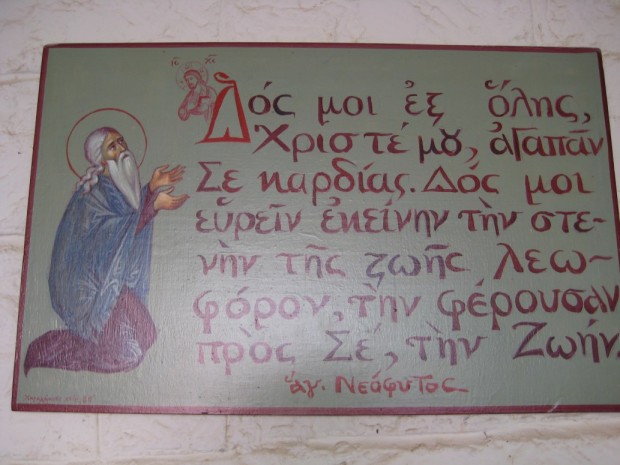 ΙC ΧC
Δός μοι ἐξ ὅλης,
Χριστέ μȣ, ἀγαπᾶν
Σε καρδίας. Δός μοι
εὑρεῖν ἐκείνην τὴν στε-
νὴν τῆς ζωῆς λεω-
φόρον, τὴν φέρουσαν
πρὸς Σέ, τὴν Ζωήν.
ἁγ. Νεόφυτος